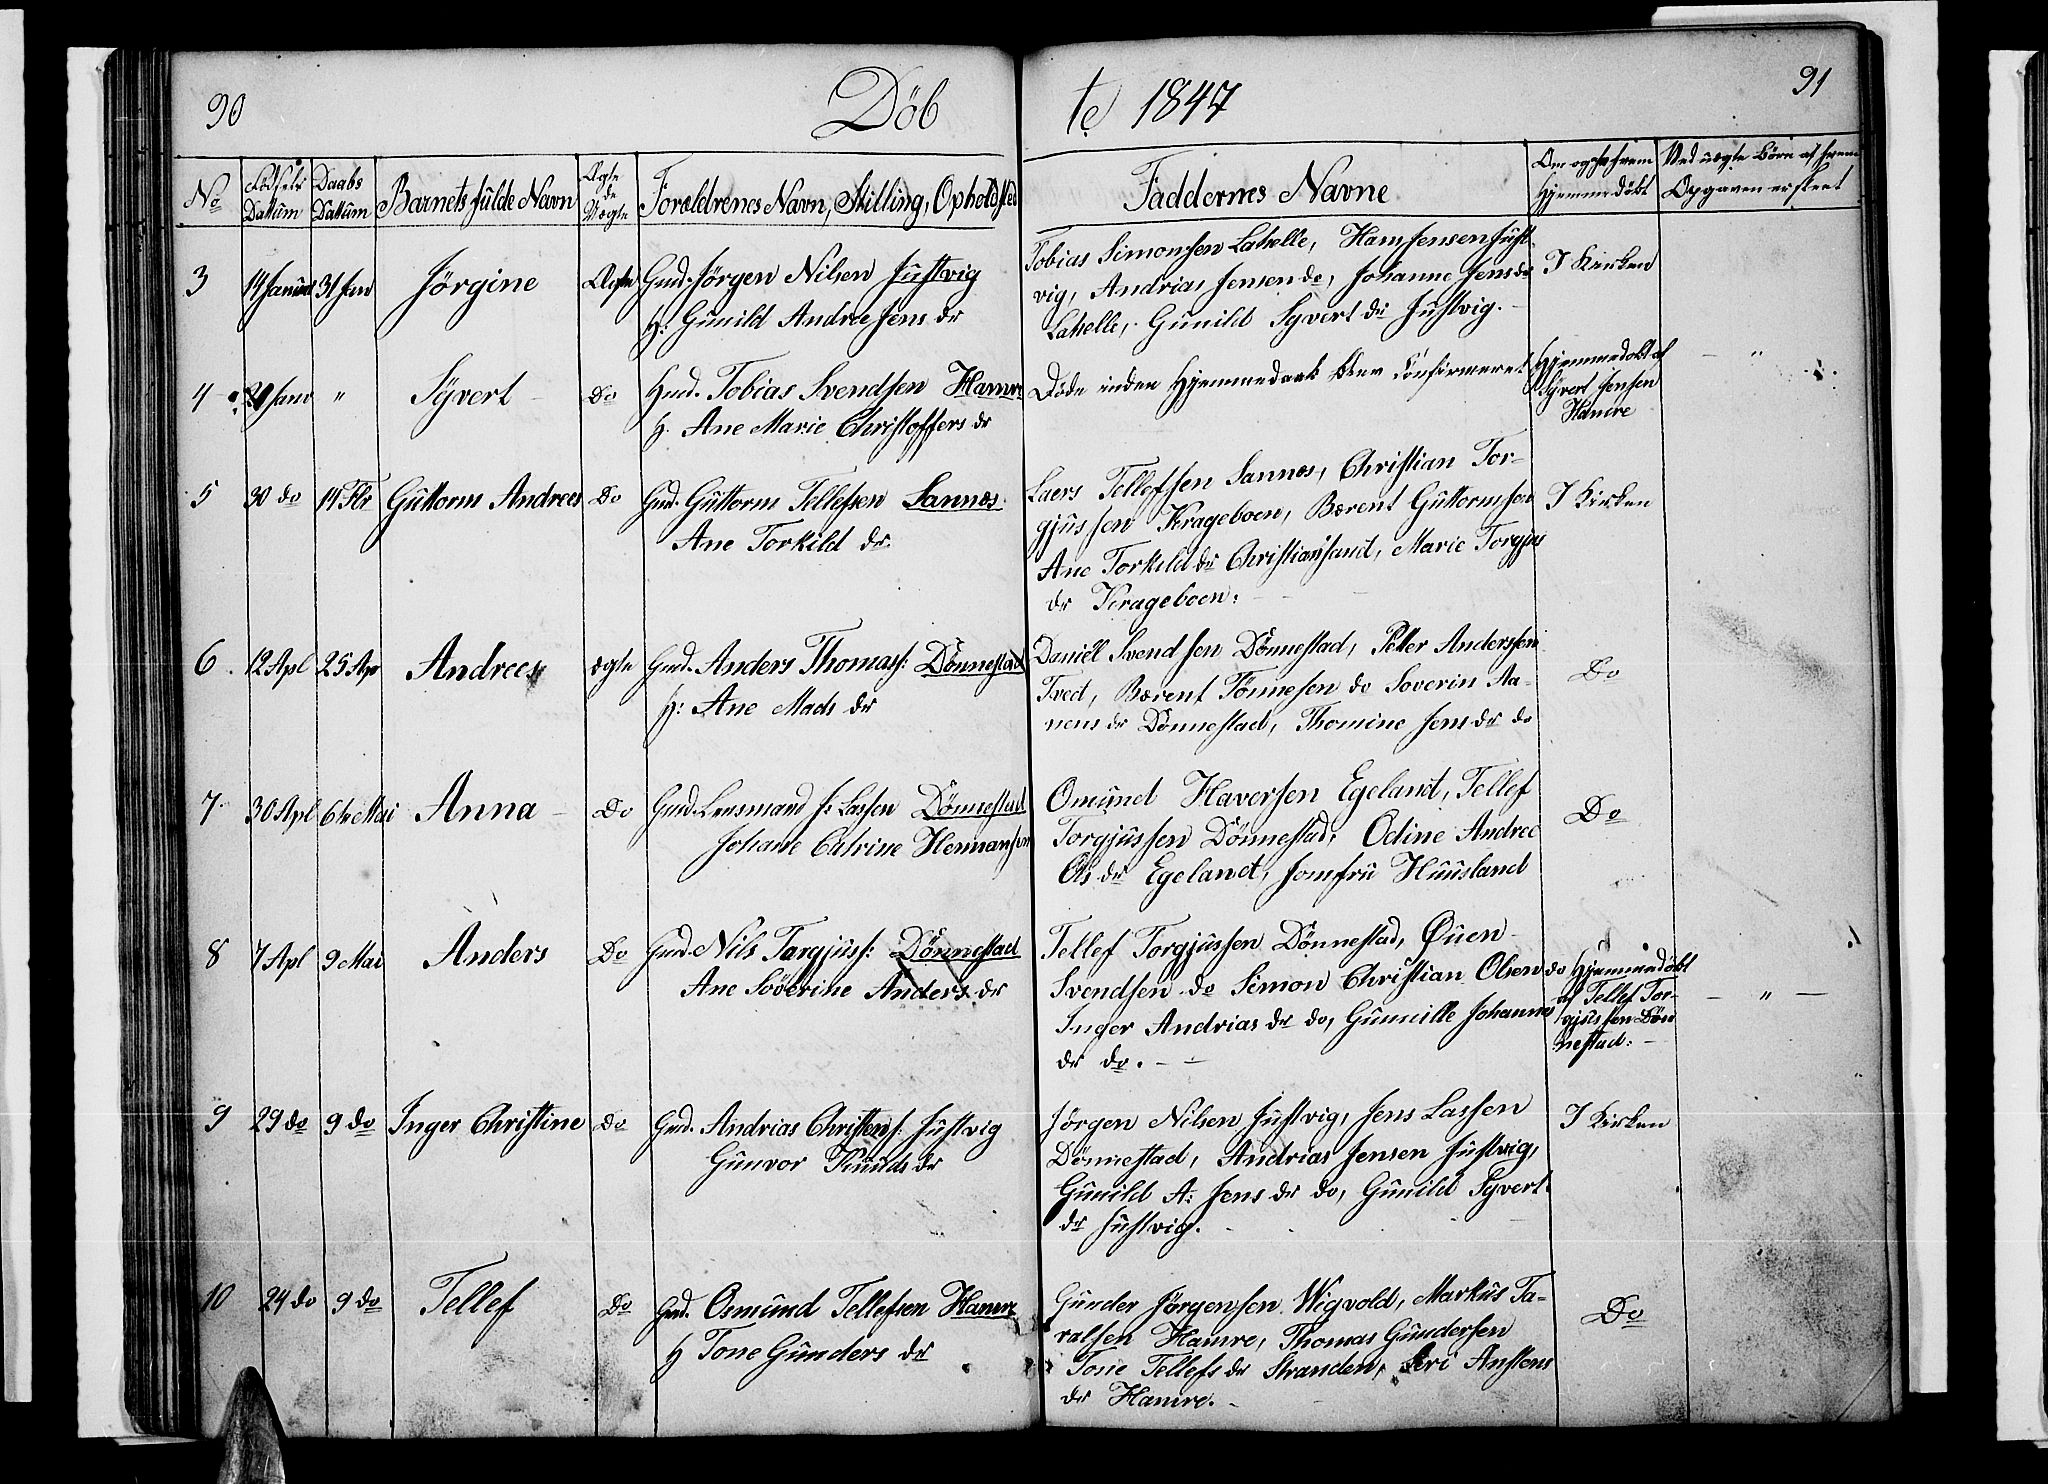 90
Döb
te 1847
91
No
Födsels Dattum
Daabs Dattum
Barnets fulde Navn
Ægte de Uægte
Forældrenes Navn, Stilling, Opholdsted
Faddernes Navne
Om ogsaa frem Hjemmedöbt
Ved uægte Börn af hvem Opgaven er skeet
3 14 Januar 31 Jan Jörgine Ægte Gmd. Jörgen Nilsen Justvig
H: Gunild Andrea Jens dr
Tobias Simonsen Lahelle, Hans Jensen Just-
vig, Andrias Jensen do, Johanne Jens dr
Lahelle, Gunild Syvert dr Justvig. -
I Kirken
4 Janr " Syvert Do Hmd. Tobias Svendsen Hamre
H. Ane Marie Christoffers dr
Döde inden Hjemmedaab blev Confirmeret
Hjemmedobt af
Syvert Jensen
Hamre
- "
5 30 do 14 Fbr Guttorm Andreas Do Gmd. Guttorm Tellefsen Sannes
Ane Torkild dr
Laers Tellefsen Sannes, Christian Tor-
gjussen Krageboen, Bærent Guttormsen
Ane Torkild dr Christiansand, Marie Torgjus
dr Krageboen:
I Kirken
6. 12 Apl 25 Ap Andreas ægte Gmd. Anders Thomass: Dönnestad
H: Ane Mads dr
Daniel Svendsen Dönnestad, Peter Anderssen
Tved, Bærent Tönnesen do Soverin Aa-
nens dr Dönnestad, Thomine Jens dr do
Do
7. 30 Apl 6te Mai Anna Do Gmd. Lensmand J: Lassen Dönnestad
Johane Catrine Hermansen
Omund Haversen Egeland, Tellef
Torgjussen Dönnestad, Odine Andrea
Ols dr Egeland, Jomfru Huusland
Do
8 7 Apl 9 Mai Anders Do Gmd. Nils Torgjuss: Dönnestad
Ane Söverine Anders dr
Tellef Torgjussen Dönnestad, Ouen
Svendsen do Simon Christian Olsen do
Inger Andrias dr do, Gunnille Johannes
dr do. - -
Hjemmedöbt
af Tellef Tor-
gjussen Dön
nestad: -
- " -
9 29 do 9 do Inger Christine Do Gmd. Andrias Christens: Justvig
Gunvor Knuds dr
Jörgen Nilsen Justvig, Jens Lassen
Dönnestad, Andrias Jensen Justvig,
Gunild A: Jens dr do, Gunild Syvert
dr Justvig.
I Kirken
10 24 do 9 do Tellef Do Gmd. Osmund Tellefsen Hamre
H Tone Gunders dr
Gunder Jörgensen Wigvold, Markus Ta-
ralsen Hamre, Thomas Gundersen
Tone Tellefs dr Stranden, Seri Anstens
dr Hamre.
Do